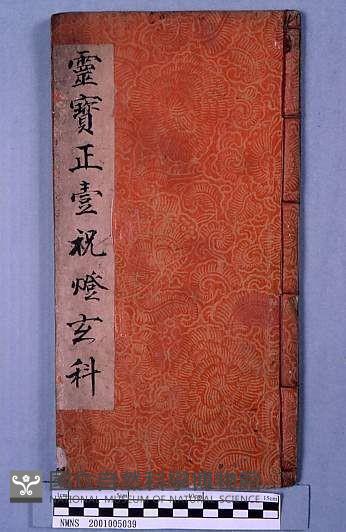 靈寶正壹祝燈玄科
國立自然科學博物館
NATIONAL MUSEUM OF NATURAL SCIENCE
15cm
NMNS 2001005039